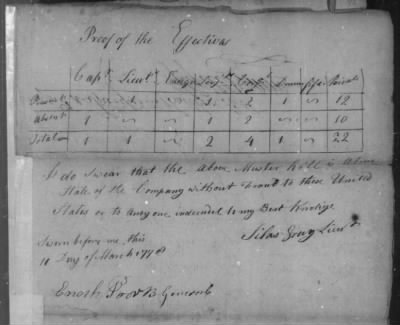 Proof of the Effectives
Capt Lieut Ensign Serjt Corpl Drum fife Privats
Present ~ 1 ~ 1 2 1 ~ 12
Absent 1 ~ ~ 1 2 ~ ~ 10
Total 1 1 ~ 2 4 1 ~ 22
I do Swear that the above Muster Roll is a true
State of the Company without fraud to these United
States or to any one
to my Best
Sworn before me this Silas Lieut
10 Day of March 1778
Enoch